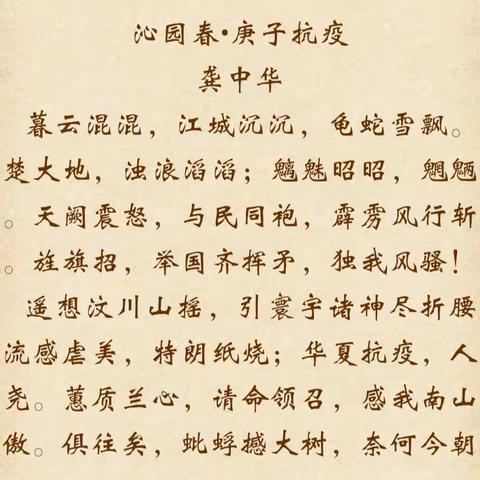 沁园春•庚子抗疫
龚中华
暮云混混，江城沉沉，龟蛇雪飘。
楚大地，浊浪滔滔；魑魅昭昭，魍魉
。天阙震怒，与民同袍，霹雳风行斩
。旌旗招，举国齐挥矛，独我风骚！
遥想汶川山摇，引寰宇诸神尽折腰
流感虐美，特朗纸烧；华夏抗疫，人
尧。蕙质兰心，请命领召，感我南山
傲。俱往矣，蚍蜉撼大树，奈何今朝